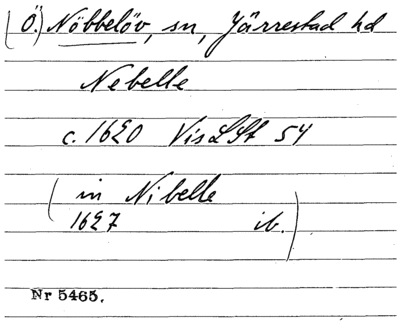 (Ö.) Nöbbelöv, sn, Järrestad hd
Nebelle
c. 1620 VisLSt 54
(in Nibelle
1627 ib.)
Nr 5465.